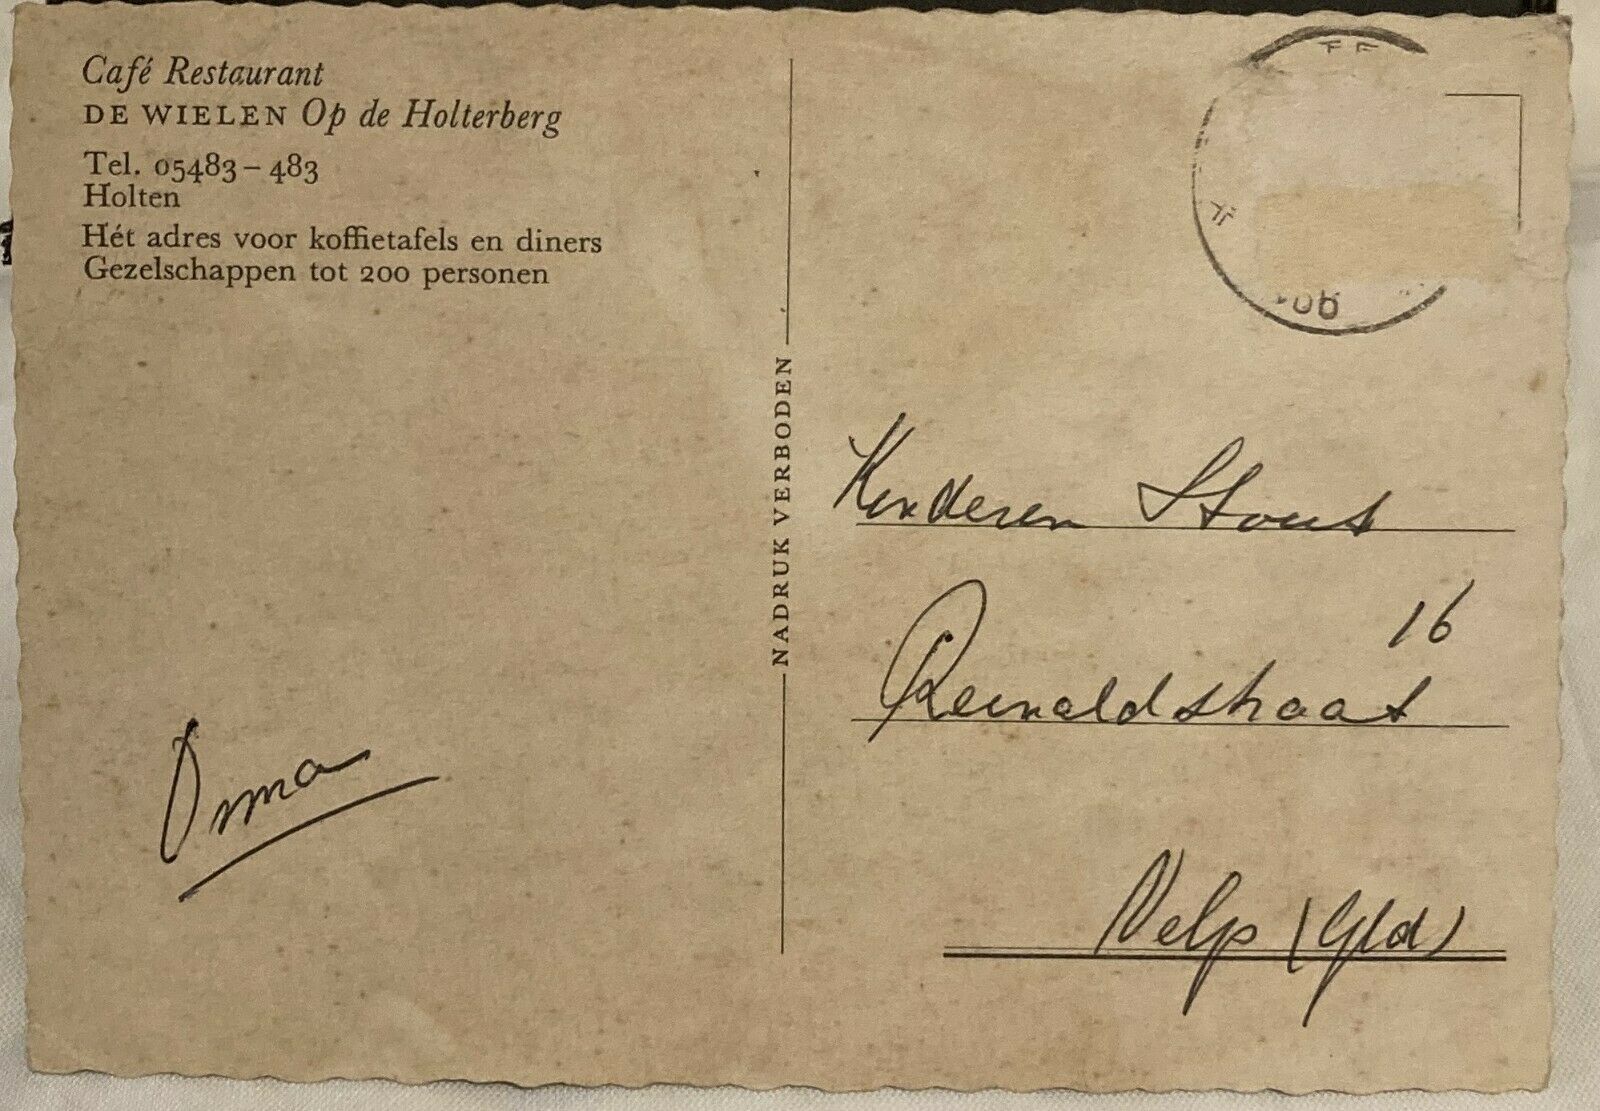 Café Restaurant
DE WIELEN Op de Holterberg
Tel. 05483 – 483
Holten
Hét adres voor koffietafels en diners
Gezelschappen tot 200 personen
Oma
NADRUK VERBODEN
Kinderen Stout
16
Reinaldstraat
Velp (Gld)